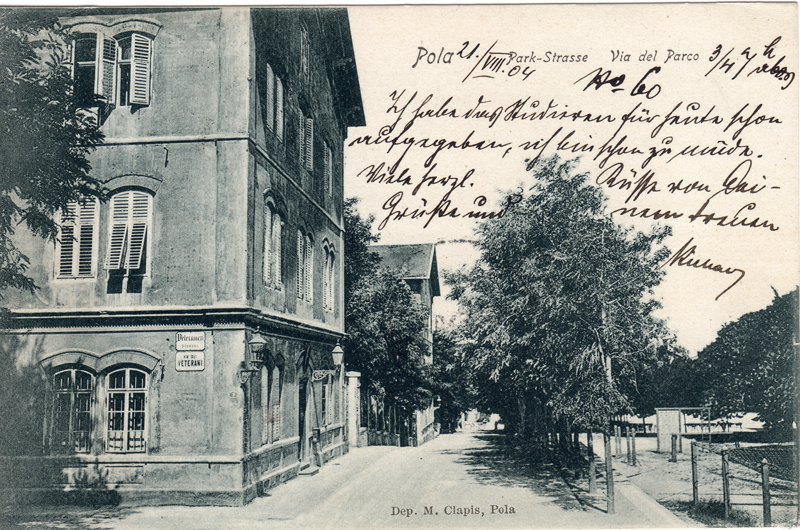 Pola 21./VIII.04 Park-Strasse Via del Parco 3/4 9 h abds
No 60
Ich habe das Studieren für heute schon
aufgegeben, ich bin schon zu müde.
Viele herzl. Küsse von Dei-
Grüße und nem treuen
Richard
Veteranen
VIA DEI
VETERANI
Dep. M. Clapis, Pola